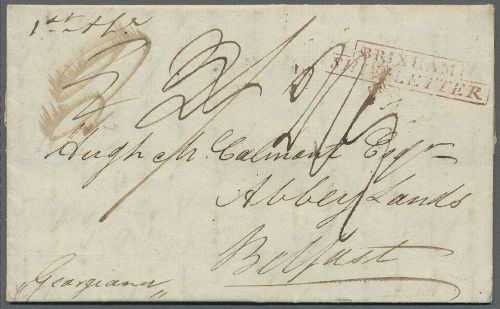 BRIXHAM
SHIP LETTER
Hugh Mc. Calmont Esqr
Abbey Lands
Belfast
"Georgiana"